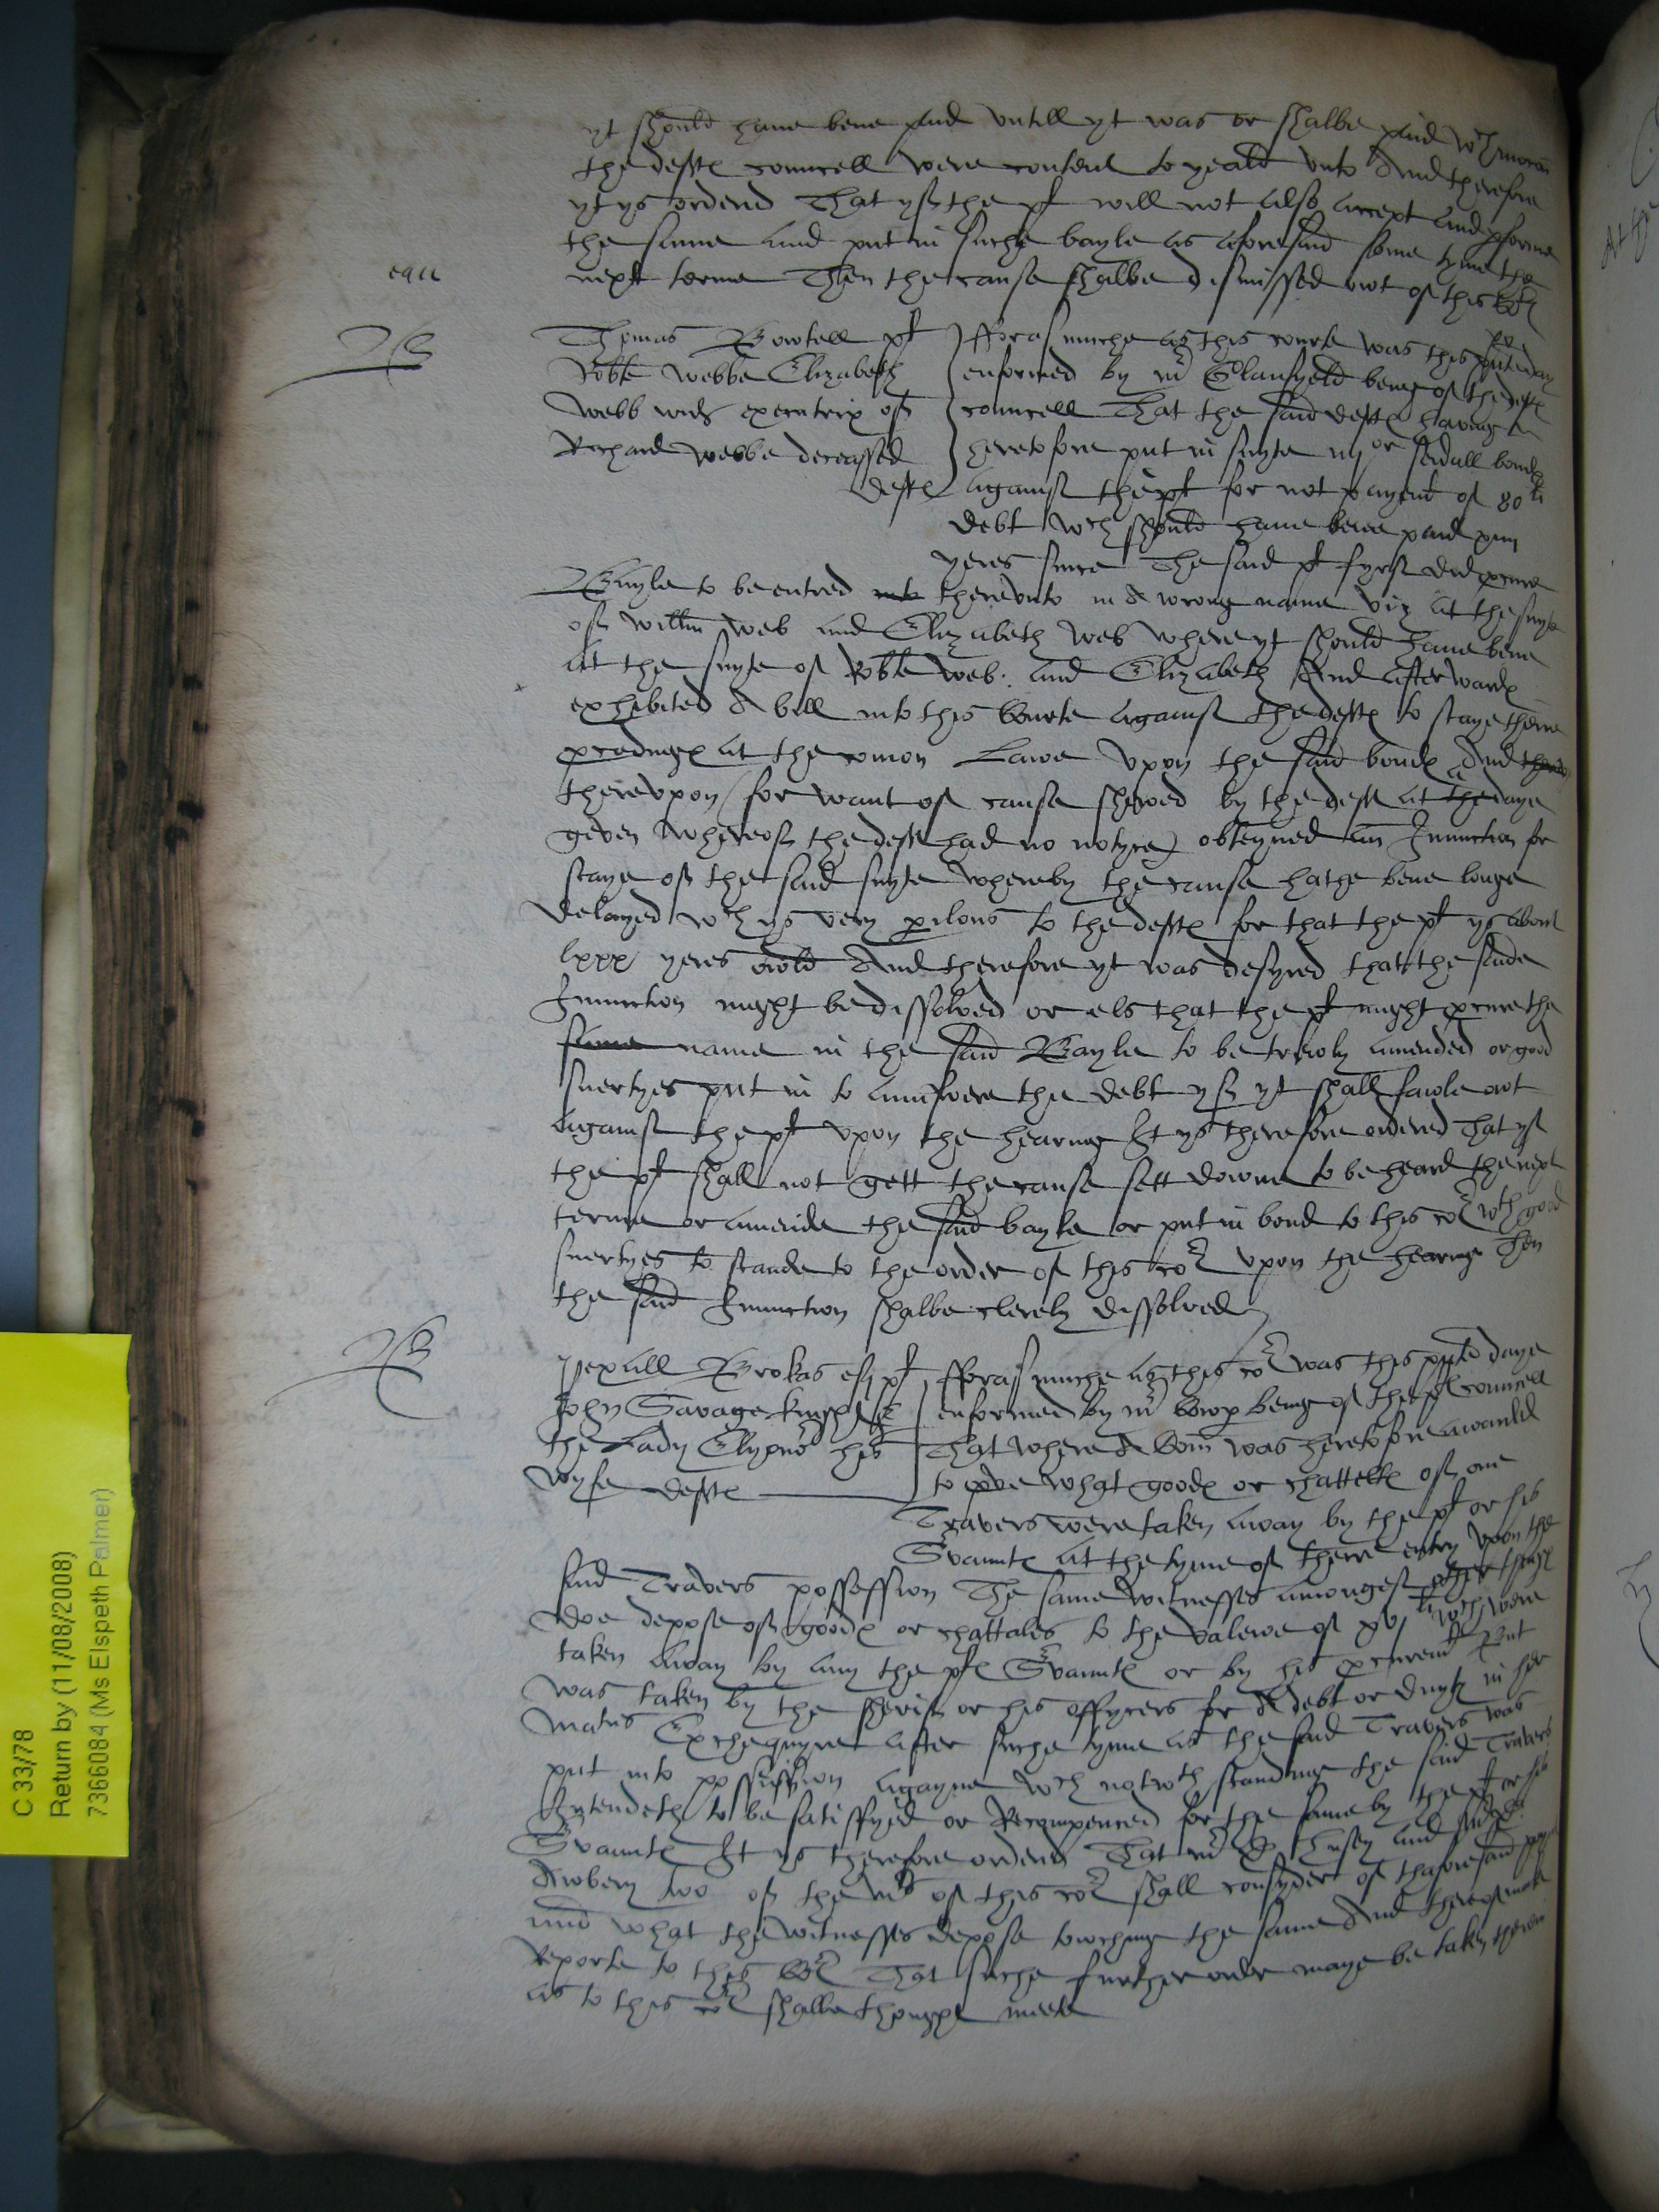 yt should have bene paid untill yt was or shalbe paid wch
the defts councell were content to yeald unto And therefore
yt ys ordered That yf the pt will not also accept and pforme
the same and put in suche bayle as aforesaid some tyme the
next terme Then the cause shalbe dismissed owt of this Cort
Thomas Bowtell pt
Robte Webbe Elizabeth
Webb widd executrix of
Richard Webbe deceassed
defts
fforasmuche as this courte was this pnte day
enformed by mr Glanfyeld being of the defts
councell That the said defts having
heretofore put in suyte iij or sevall bonds
against the pt for not payent of 80 li
debt wch should have bene paid
yeres since The said pt fyrst did pcure
Bayle to be entred thereunto in A wrong name viz at the suyte
of Willm Web and Elizabeth Web where yt should have bene
at the suyte of Robte Web and Elizabeth And afterwards
exhibited A bill into this Courte against the defts to staye there
pcedings at the comon Lawe upon the said bonds And
thereupon (for want of cause shewed by the deft at the daye
geven whereof the deft had no notyce) obteyned an Iniunction for
staye of the said suyte whereby the cause hathe bene longe
delayed wch ys very pilous to the defts for that the pt ys about
lxxx yeres owld And therefore yt was desyred that the saide
Iniunction might be dissolved or els that the pt might pcure the
same name in the said Bayle to be trewly amended or good
suertyes put in to aunswere the debt yf yt shall fawle owt
against the pt upon the hearing It ys therefore ordered That yf
the pt shall not gett the cause sett downe to be heard the next
terme or amende the said bayle or put in bond to this cort wth good
suertyes to stande to the order of this cort upon the hearing Then
the said Iniunction shalbe clerely dissolved
Pexall Brokas esq pt
John Savage knight &
the Lady Elynor his
wyfe defts
fforasmuche as this cort was this pnte daye
enformed by mr being of the pts councell
That where A Com was heretofore awarded
to pve what goods or chattells of one
Travers were taken away by the pt or his
Svaunts at the tyme of there entry upon the
said Travers possession The same witnesses amongest other things
doe depose of goods or chattales to the valewe of xvj li wch were
taken away by any the pts Svaunts or by his pcurement But
was taken by the Sherif or his offycers for A debt or duty in her
Mats Exchequyre after suche tyme as the said Travers was
put into possession agayne wch notwthstanding the said Travers
Intendeth to be satisfyed or Recompenced for the same by the pt or his
Svaunts It ys therefore ordered That mr D and
Awbery two of the mrs of this cort shall consyder of thaforesaid
and what the witnesses depose towching the same And thereof make
Reporte to this Cort That suche further order maye be taken therein
as to this cort shalbe thought meete
C 33/78
Return by (11/08/2008)
7366084 (Ms Elspeth Palmer)